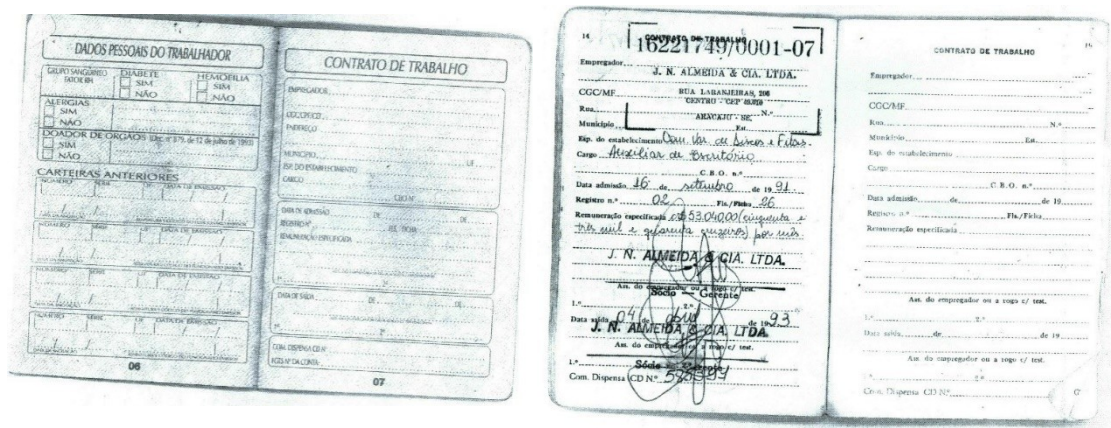 DADOS PESSOAIS DO TRABALHADOR
GRUPO SANGUÍNEO
FATOR RH
DIABETE
SIM
NÃO
HEMOFILIA
SIM
NÃO
ALERGIAS
SIM
NÃO
DOADOR DE ÓRGÃOS (Dec. nº 879, de 22 de julho de 1993)
SIM
NÃO
CARTEIRAS ANTERIORES
NÚMERO SÉRIE UF DATA DE EMISSÃO
NÚMERO SÉRIE UF DATA DE EMISSÃO
NÚMERO SÉRIE UF DATA DE EMISSÃO
NÚMERO SÉRIE UF DATA DE EMISSÃO
06
CONTRATO DE TRABALHO
EMPREGADOR
CGC/CPF/CCF
ENDEREÇO
MUNICÍPIO UF
ESP. DO ESTABELECIMENTO
CARGO
CBO Nº
DATA DE ADMISSÃO DE DE
REGISTRO Nº FLS. / FICHA
REMUNERAÇÃO ESPECIFICADA
DATA DE SAÍDA DE DE
COM. DISPENSA CD Nº
FGTS Nº DA CONTA
07
16
CONTRATO DE TRABALHO
16221749/0001-07
Empregador
J. N. ALMEIDA & CIA. LTDA.
CGC/MF RUA LARANJEIRAS, 206
CENTRO - CEP
Rua N.º
ARACAJU - SE.
Município Est.
Esp. do estabelecimento Com. Var. de Discos e Fitas.
Cargo Auxiliar de Escritório
C.B.O. n.º
Data admissão 16 de setembro de 1991.
Registro n.º 02 Fls./Ficha 26
Remuneração especificada cr$ 53.040,00 (cinquenta e
três mil e quarenta cruzeiros) por mês.
J. N. ALMEIDA & CIA. LTDA.
Ass. do empregador ou a rogo c/ test.
Sócio - Gerente
1.º 2.º
Data saída 04 de abril de 1993
J. N. ALMEIDA & CIA. LTDA
Ass. do empregador ou a rogo c/ test.
1.º Sócio
Com. Dispensa CD N.º
CONTRATO DE TRABALHO
Empregador
CGC/MF
Rua N.º
Município Est.
Esp. do estabelecimento
Cargo
C.B.O. n.º
Data admissão de de 19
Registro n.º Fls./Ficha
Remuneração especificada
Ass. do empregador ou a rogo c/ test.
1.º 2.º
Data saída de de 19
Ass. do empregador ou a rogo c/ test.
2.º
Com. Dispensa CD N.º